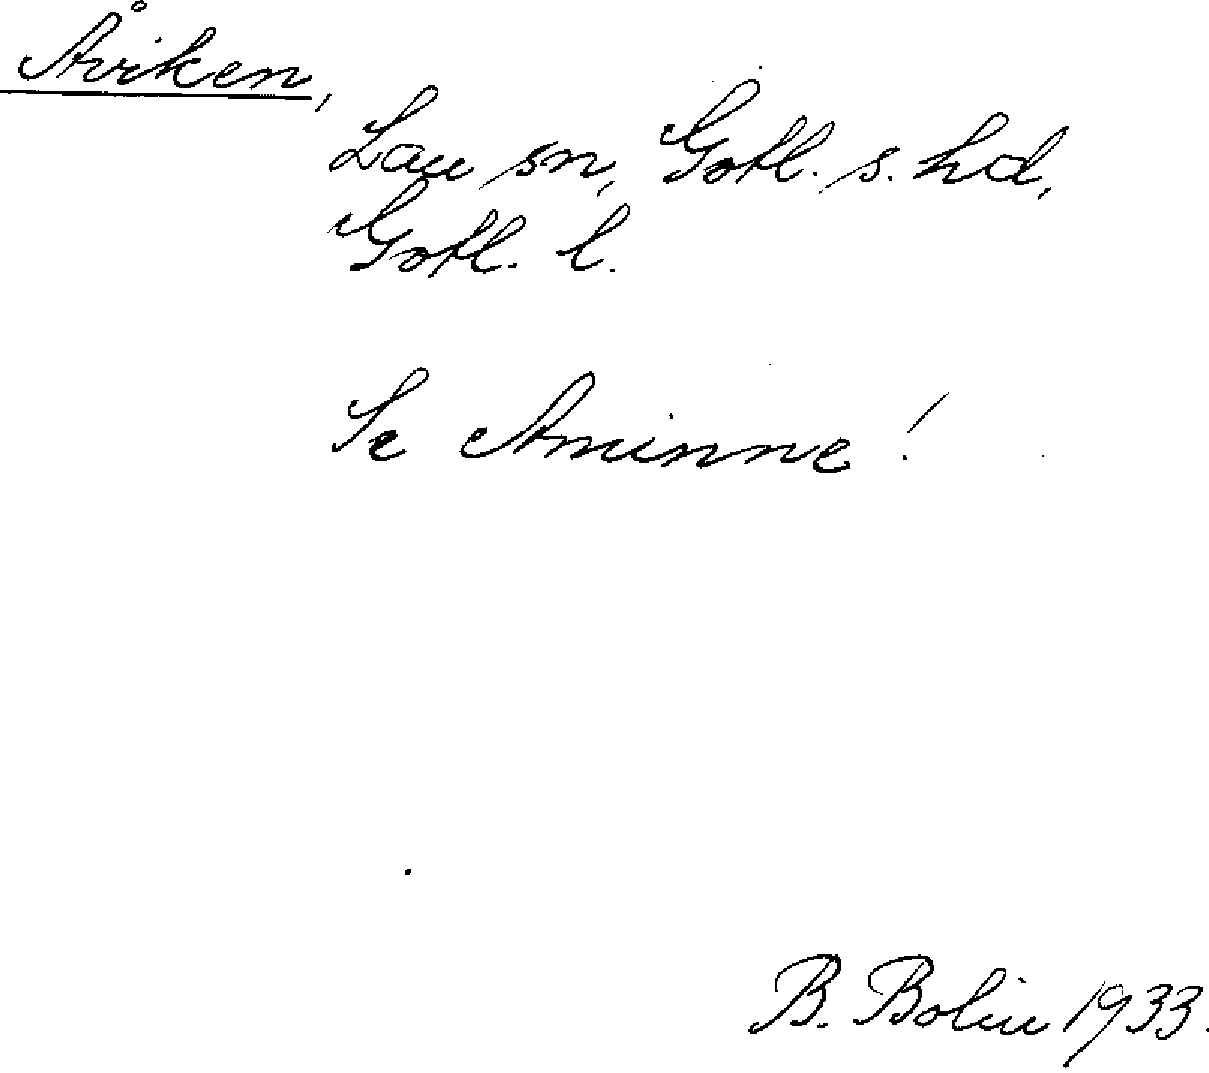 Åviken,
Lau sn, Gotl. s. hd,
Gotl. l.
Se Aminne!
B. Bolin 1933.